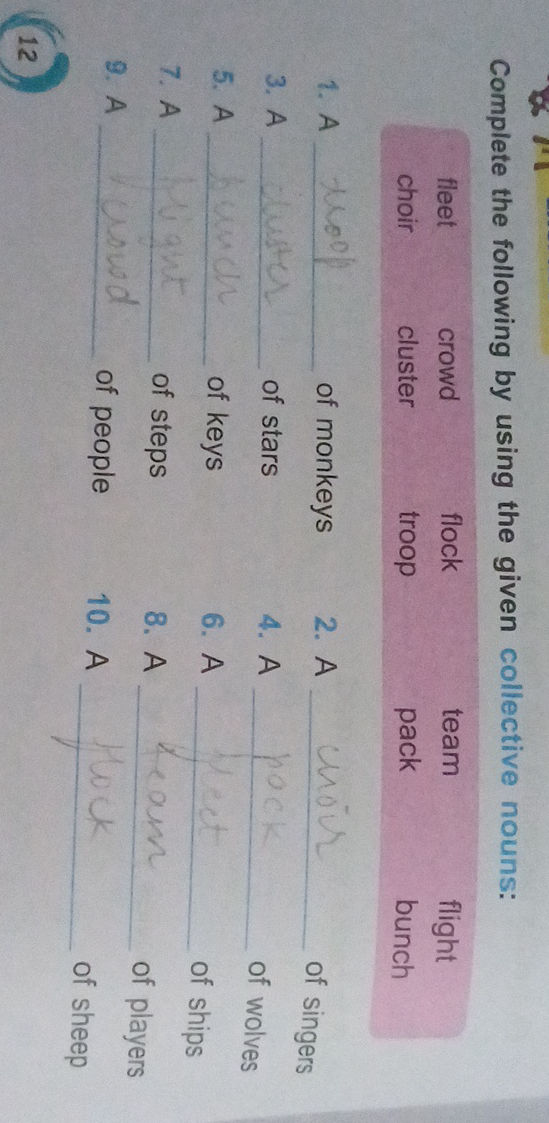 Complete the following by using the given collective nouns:
fleet crowd flock team flight
choir cluster troop pack bunch
1. A troop of monkeys 2. A choir of singers
3. A cluster of stars 4. A pack of wolves
5. A bunch of keys 6. A fleet of ships
7. A flight of steps 8. A team of players
9. A crowd of people 10. A flock of sheep
12